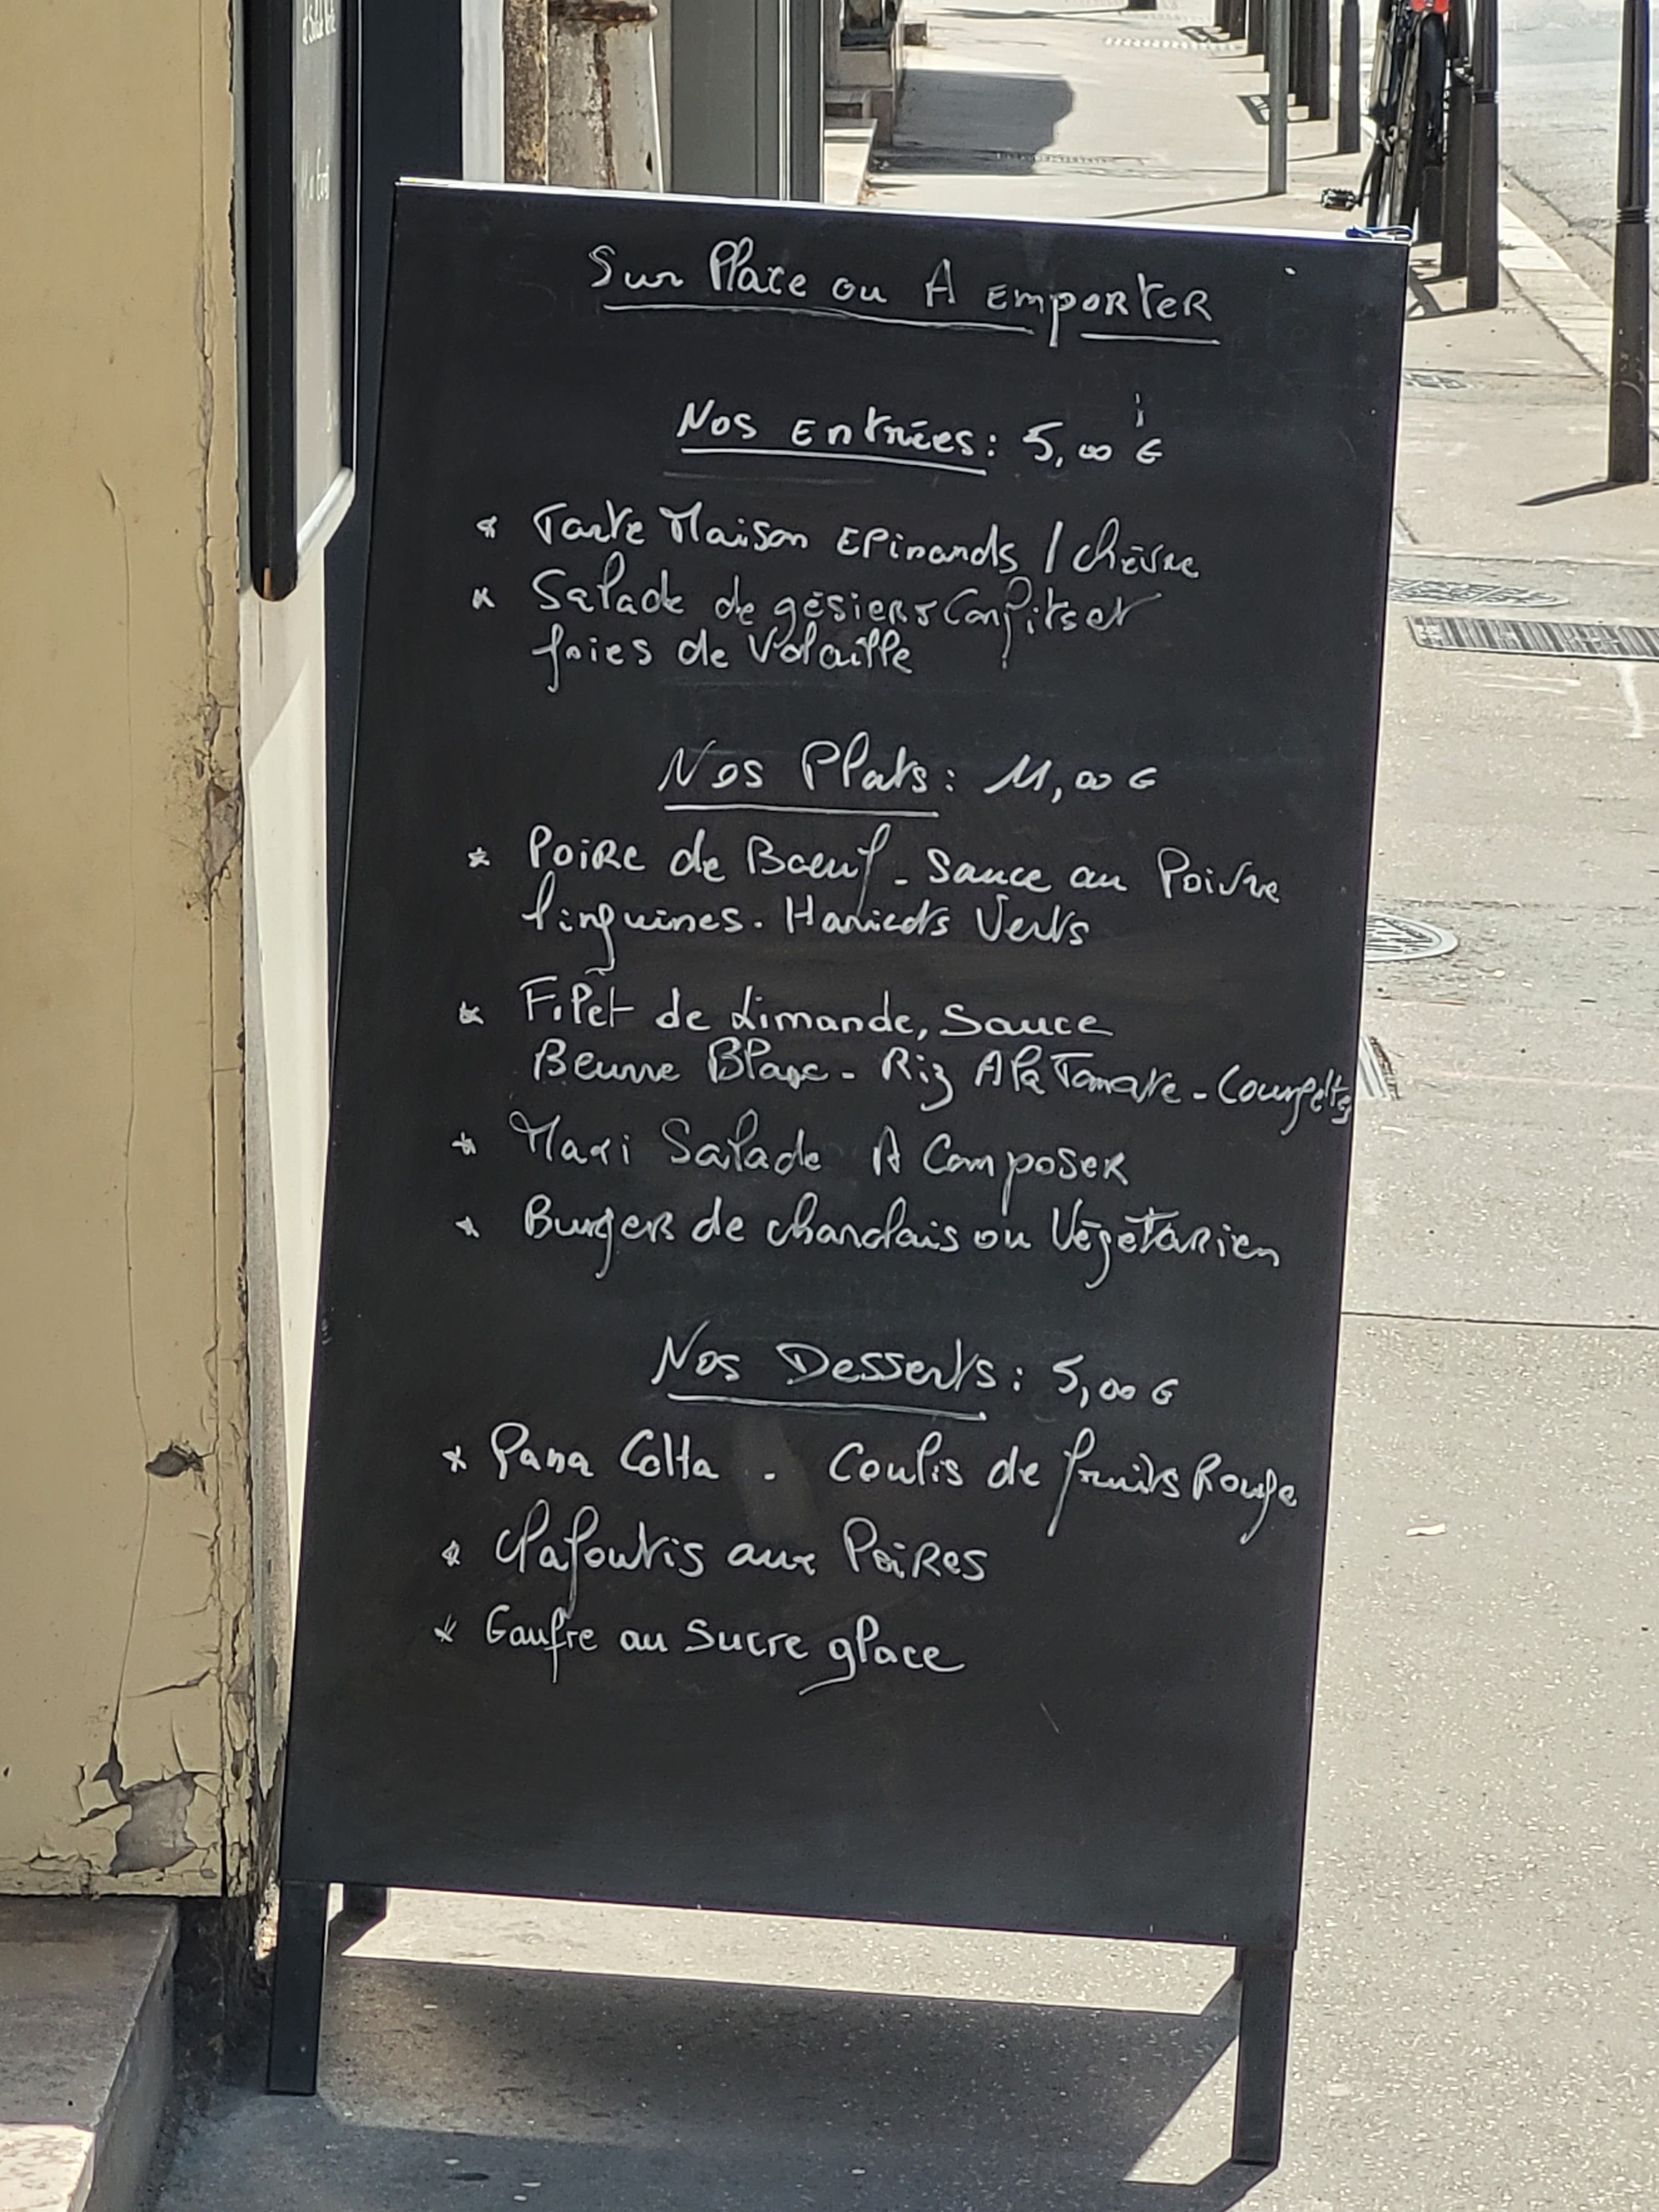 Sur Place ou A EmporTER
Nos Entrées : 5,00 €
* Tarte Maison Epinards / chèvre
* Salade de gésiers Confits et
foies de Volaille
Nos Plats : 11,00 €
* Poire de Boeuf - Sauce au Poivre
linguines - Haricots Verts
* Filet de Limande, Sauce
Beurre Blanc - Riz A la Tomate - Courgettes
* Maxi Salade A Composer
* Burger de charolais ou Végétarien
Nos Desserts : 5,00 €
* Pana Cotta - Coulis de fruits Rouge
* Clafoutis aux Poires
* Gaufre au Sucre glace